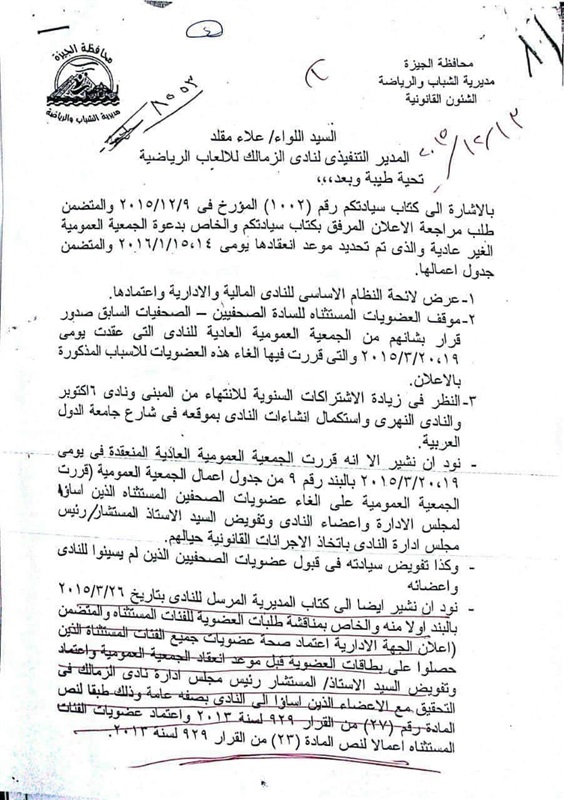 محافظة الجيزة
مديرية الشباب والرياضة
الشئون القانونية
محافظة الجيزة
مديرية الشباب والرياضة
٨٥٥٣
السيد اللواء/ علاء مقلد
المدير التنفيذى لنادى الزمالك للالعاب الرياضية
تحية طيبة وبعد,,,
بالاشارة الى كتاب سيادتكم رقم (١٠٠٢) المؤرخ فى ٢٠١٥/١٢/٩ والمتضمن
طلب مراجعة الاعلان المرفق بكتاب سيادتكم والخاص بدعوة الجمعية العمومية
الغير عادية والذى تم تحديد موعد انعقادها يومى ٢٠١٦/١/١٥,١٤ والمتضمن
جدول اعمالها.
١- عرض لائحة النظام الاساسى للنادى المالية والادارية واعتمادها.
٢- موقف العضويات المستثناه للسادة الصحفيين – الصحفيات السابق صدور
قرار بشانهم من الجمعية العمومية العادية للنادى التى عقدت يومى
٢٠١٥/٣/٢٠,١٩ والتى قررت فيها الغاء هذه العضويات للاسباب المذكورة
بالاعلان.
٣- النظر فى زيادة الاشتراكات السنوية للانتهاء من المبنى ونادى ٦اكتوبر
والنادى النهرى واستكمال انشاءات النادى بموقعه فى شارع جامعة الدول
العربية.
- نود ان نشير الا انه قررت الجمعية العمومية العادية المنعقدة فى يومى
٢٠١٥/٣/٢٠,١٩ بالبند رقم ٩ من جدول اعمال الجمعية العمومية (قررت
الجمعية العمومية على الغاء عضويات الصحفين المستثناه الذين اساؤا
لمجلس الادارة واعضاء النادى وتفويض السيد الاستاذ المستشار/ رئيس
مجلس ادارة النادى باتخاذ الاجرائات القانونية حيالهم.
- وكذا تفويض سيادته فى قبول عضويات الصحفيين الذين لم يسيئوا للنادى
واعضائه
- نود ان نشير ايضا الى كتاب المديرية المرسل للنادى بتاريخ ٢٠١٥/٣/٢٦
بالبند اولا منه والخاص بمناقشة طلبات العضوية للفئات المستثناه والمتضمن
(اعلان الجهة الادارية اعتماد صحة عضويات جميع الفئات المستثناة الذين
حصلوا على بطاقات العضوية قبل موعد انعقاد الجمعية العمومية واعتماد
وتفويض السيد الاستاذ/ مستشار رئيس مجلس ادارة نادى الزمالك فى
التحقيق مع الاعضاء الذين اساؤا الى النادى بصفه عامة وذلك طبقا لنص
المادة رقم (٢٧) من القرار ٩٢٩ لسنة ٢٠١٣ واعتماد عضويات الفئات
المستثناه اعمالا لنص المادة (٢٣) من القرار ٩٢٩ لسنة ٢٠١٣.